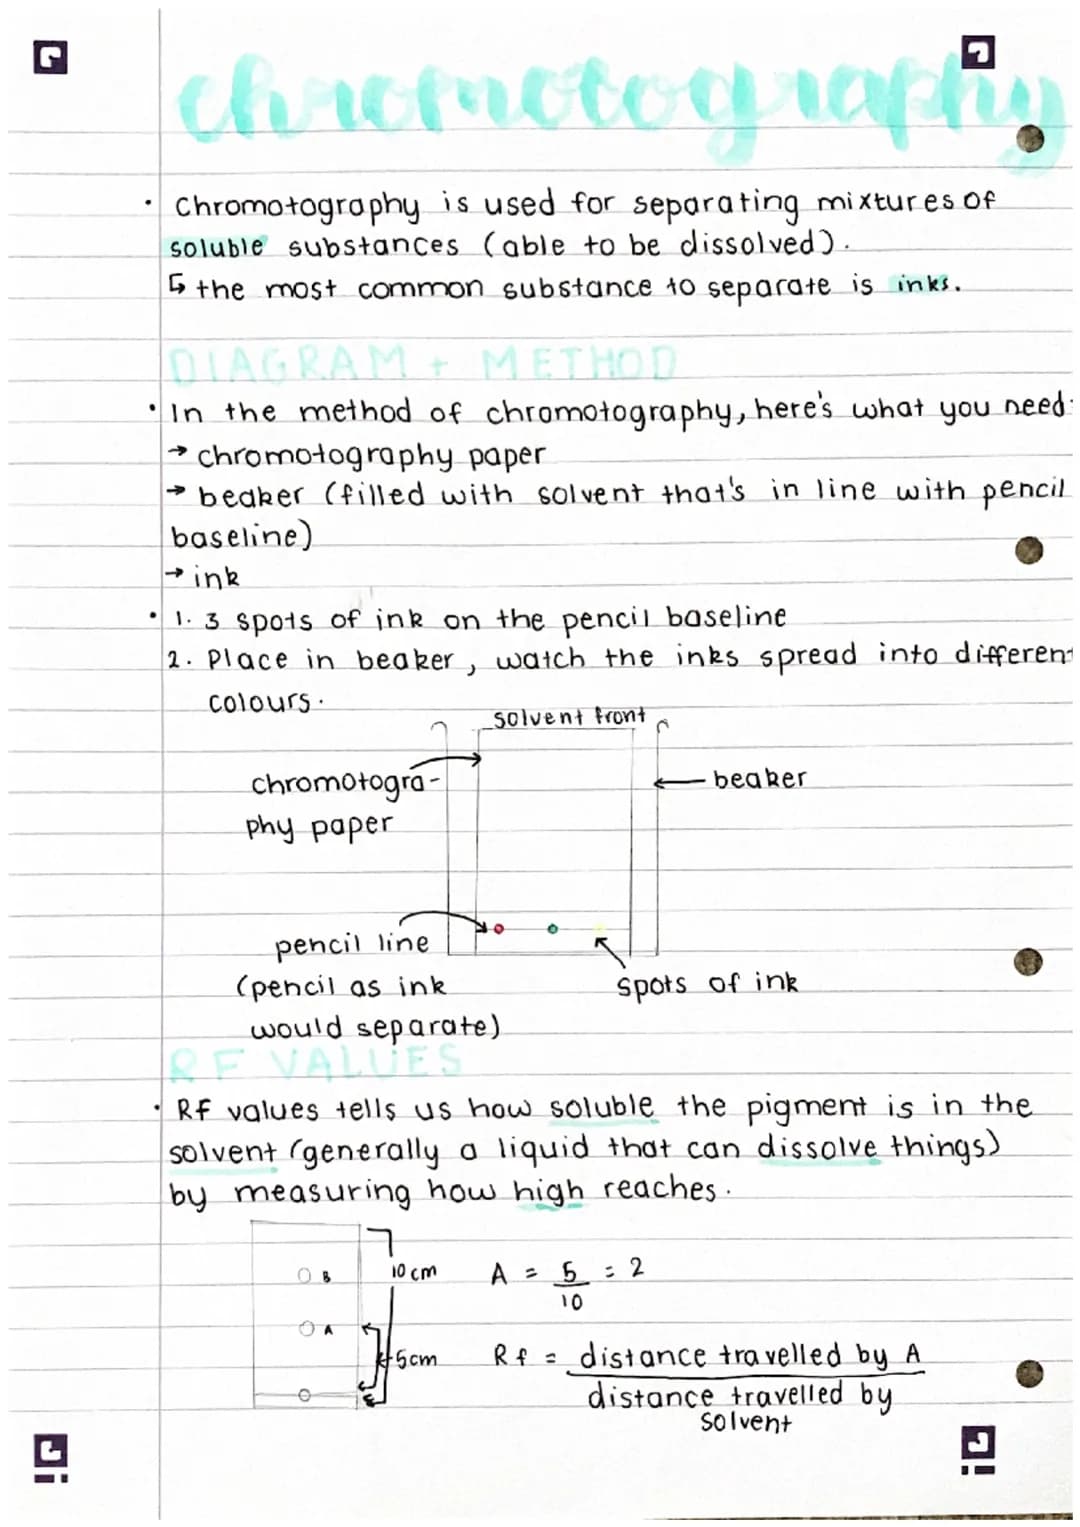 chromotography
· Chromotography is used for separating mixtures of
soluble substances (able to be dissolved).
↳ the most common substance to separate is inks.
DIAGRAM + METHOD
· In the method of chromotography, here's what you need:
→ chromotography paper
→ beaker (filled with solvent that's in line with pencil
baseline)
→ ink
· 1. 3 spots of ink on the pencil baseline
2. Place in beaker, watch the inks spread into different
colours.
solvent front
chromotogra-
phy paper
beaker
pencil line
(pencil as ink
would separate)
spots of ink
RF VALUES
· Rf values tells us how soluble the pigment is in the
solvent (generally a liquid that can dissolve things)
by measuring how high reaches.
B
10 cm
A = 5/10 = 2
A
5cm
Rf = distance travelled by A
distance travelled by
solvent